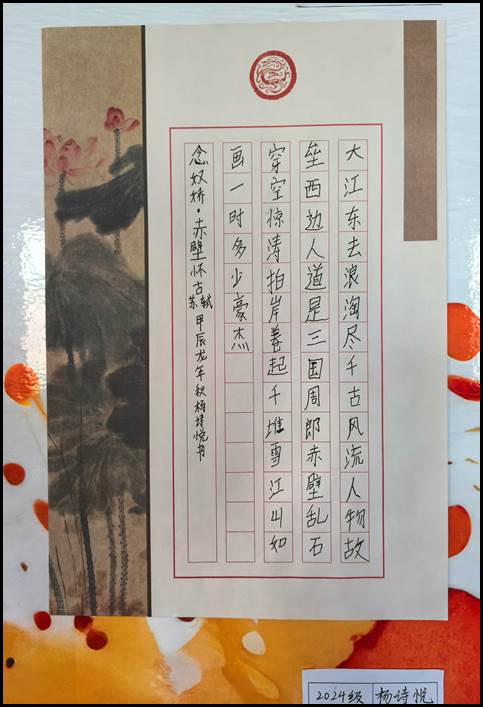 大江东去浪淘尽千古风流人物故
垒西边人道是三国周郎赤壁乱石
穿空惊涛拍岸卷起千堆雪江山如
画一时多少豪杰
念奴娇·赤壁怀古苏轼甲辰龙年秋杨诗悦书
2024级 杨诗悦